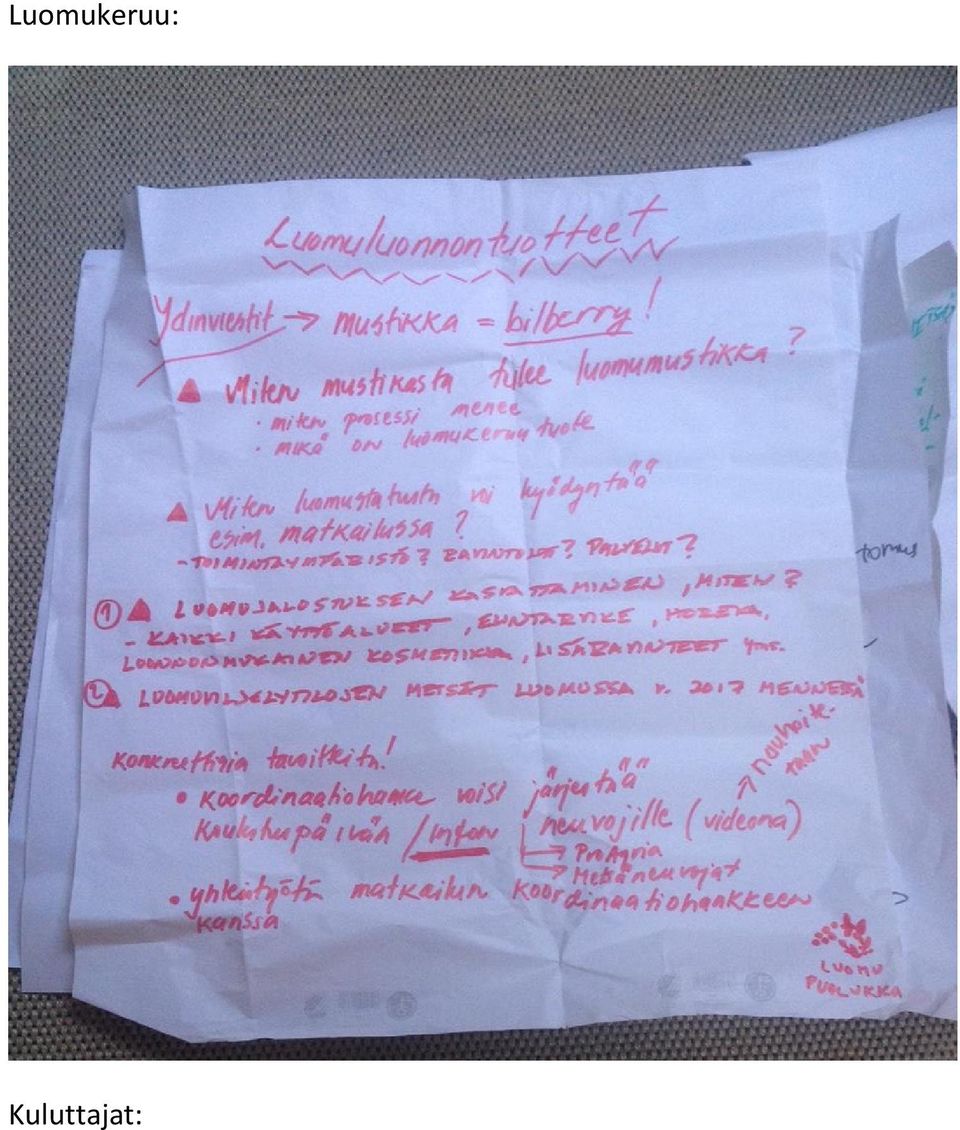 Luomukeruu:
Luomuluonnontuotteet
Ydinviestit → mustikka = bilberry!
▲ Miten mustikasta tulee luomumustikka?
· miten prosessi menee
· mikä on luomukeruutuote
▲ Miten luomustatusta voi hyödyntää
esim. matkailussa?
- TOIMINTAYMPÄRISTÖ? RAVINTOLAT? PALVELUT?
① ▲ LUOMUJALOSTUKSEN KASVATTAMINEN, MITEN?
- KAIKKI KÄYTTÖALUEET, ELINTARVIKE, HORECA,
LUONNONMUKAINEN KOSMETIIKKA, LISÄRAVINTEET YMS.
② ▲ LUOMUVILJELYTILOJEN METSÄT LUOMUSSA V. 2017 MENNESSÄ
Konkreettisia tavoitteita!
• Koordinaatiohanke voisi järjestää
Koulutuspäivän / Infon neuvojille (videona)
↗ nauhoite-
taan
→ ProAgria
→ Metsäneuvojat
• yhteistyötä matkailun koordinaatiohankkeen
kanssa
LUOMU
PUOLUKKA
tomus
Kuluttajat: